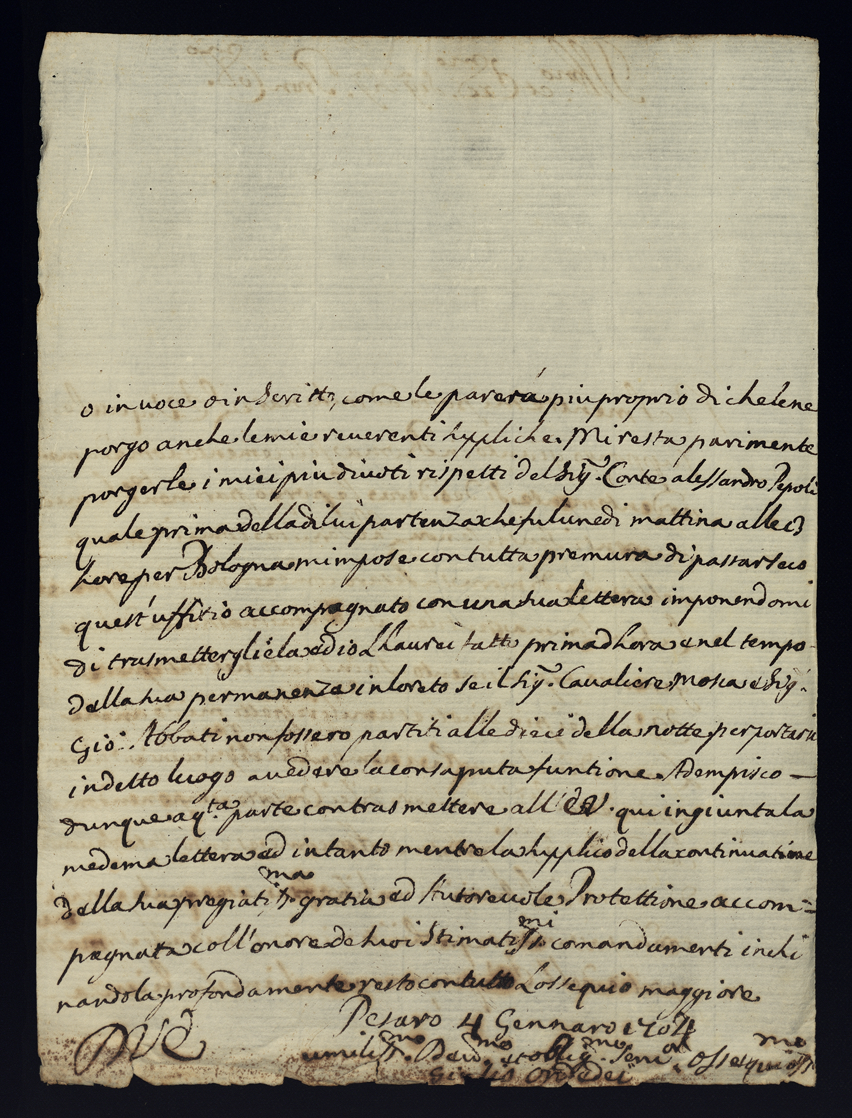 o in voce o in scritto, come le parerà piu proprio di che le ne
porgo anche le mie reverenti suppliche. Mi resta parimente
porgerle i miei piu divoti rispetti del Sig.r Conte Alessandro Pepoli
quale prima della di lui partenza che fu lunedi mattina alle 13
hore per Bologna m'impose con tutta premura di passar seco
quest'uffitio accompagnato con una sua lettera imponendomi
di trasmettergliela ed io l'haurei fatto prima d'hora e nel tempo
della sua permanenza in Loreto se il Sig.r Cavaliere Mosca e Sig.r
Gio: Abbati non fossero partiti alle dieci della notte per portarsi
in detto luogo a vedere la consaputa funtione. Adempisco
dunque a q.ta parte con trasmettere all'E.V. qui ingiunta la
medema lettera ed intanto mentre la supplico della continuatione
della sua pregiatiss.ma gratia ed autorevole Protettione accom=
pagnata coll'onore de suoi stimatiss.mi comandamenti inchi
nandola profondamente resto con tutto l'ossequio maggiore
Pesaro 4 Gennaro 1704
umiliss.mo Dev.mo et obblig.mo Ser.e ossequiosiss.mo
Giulio